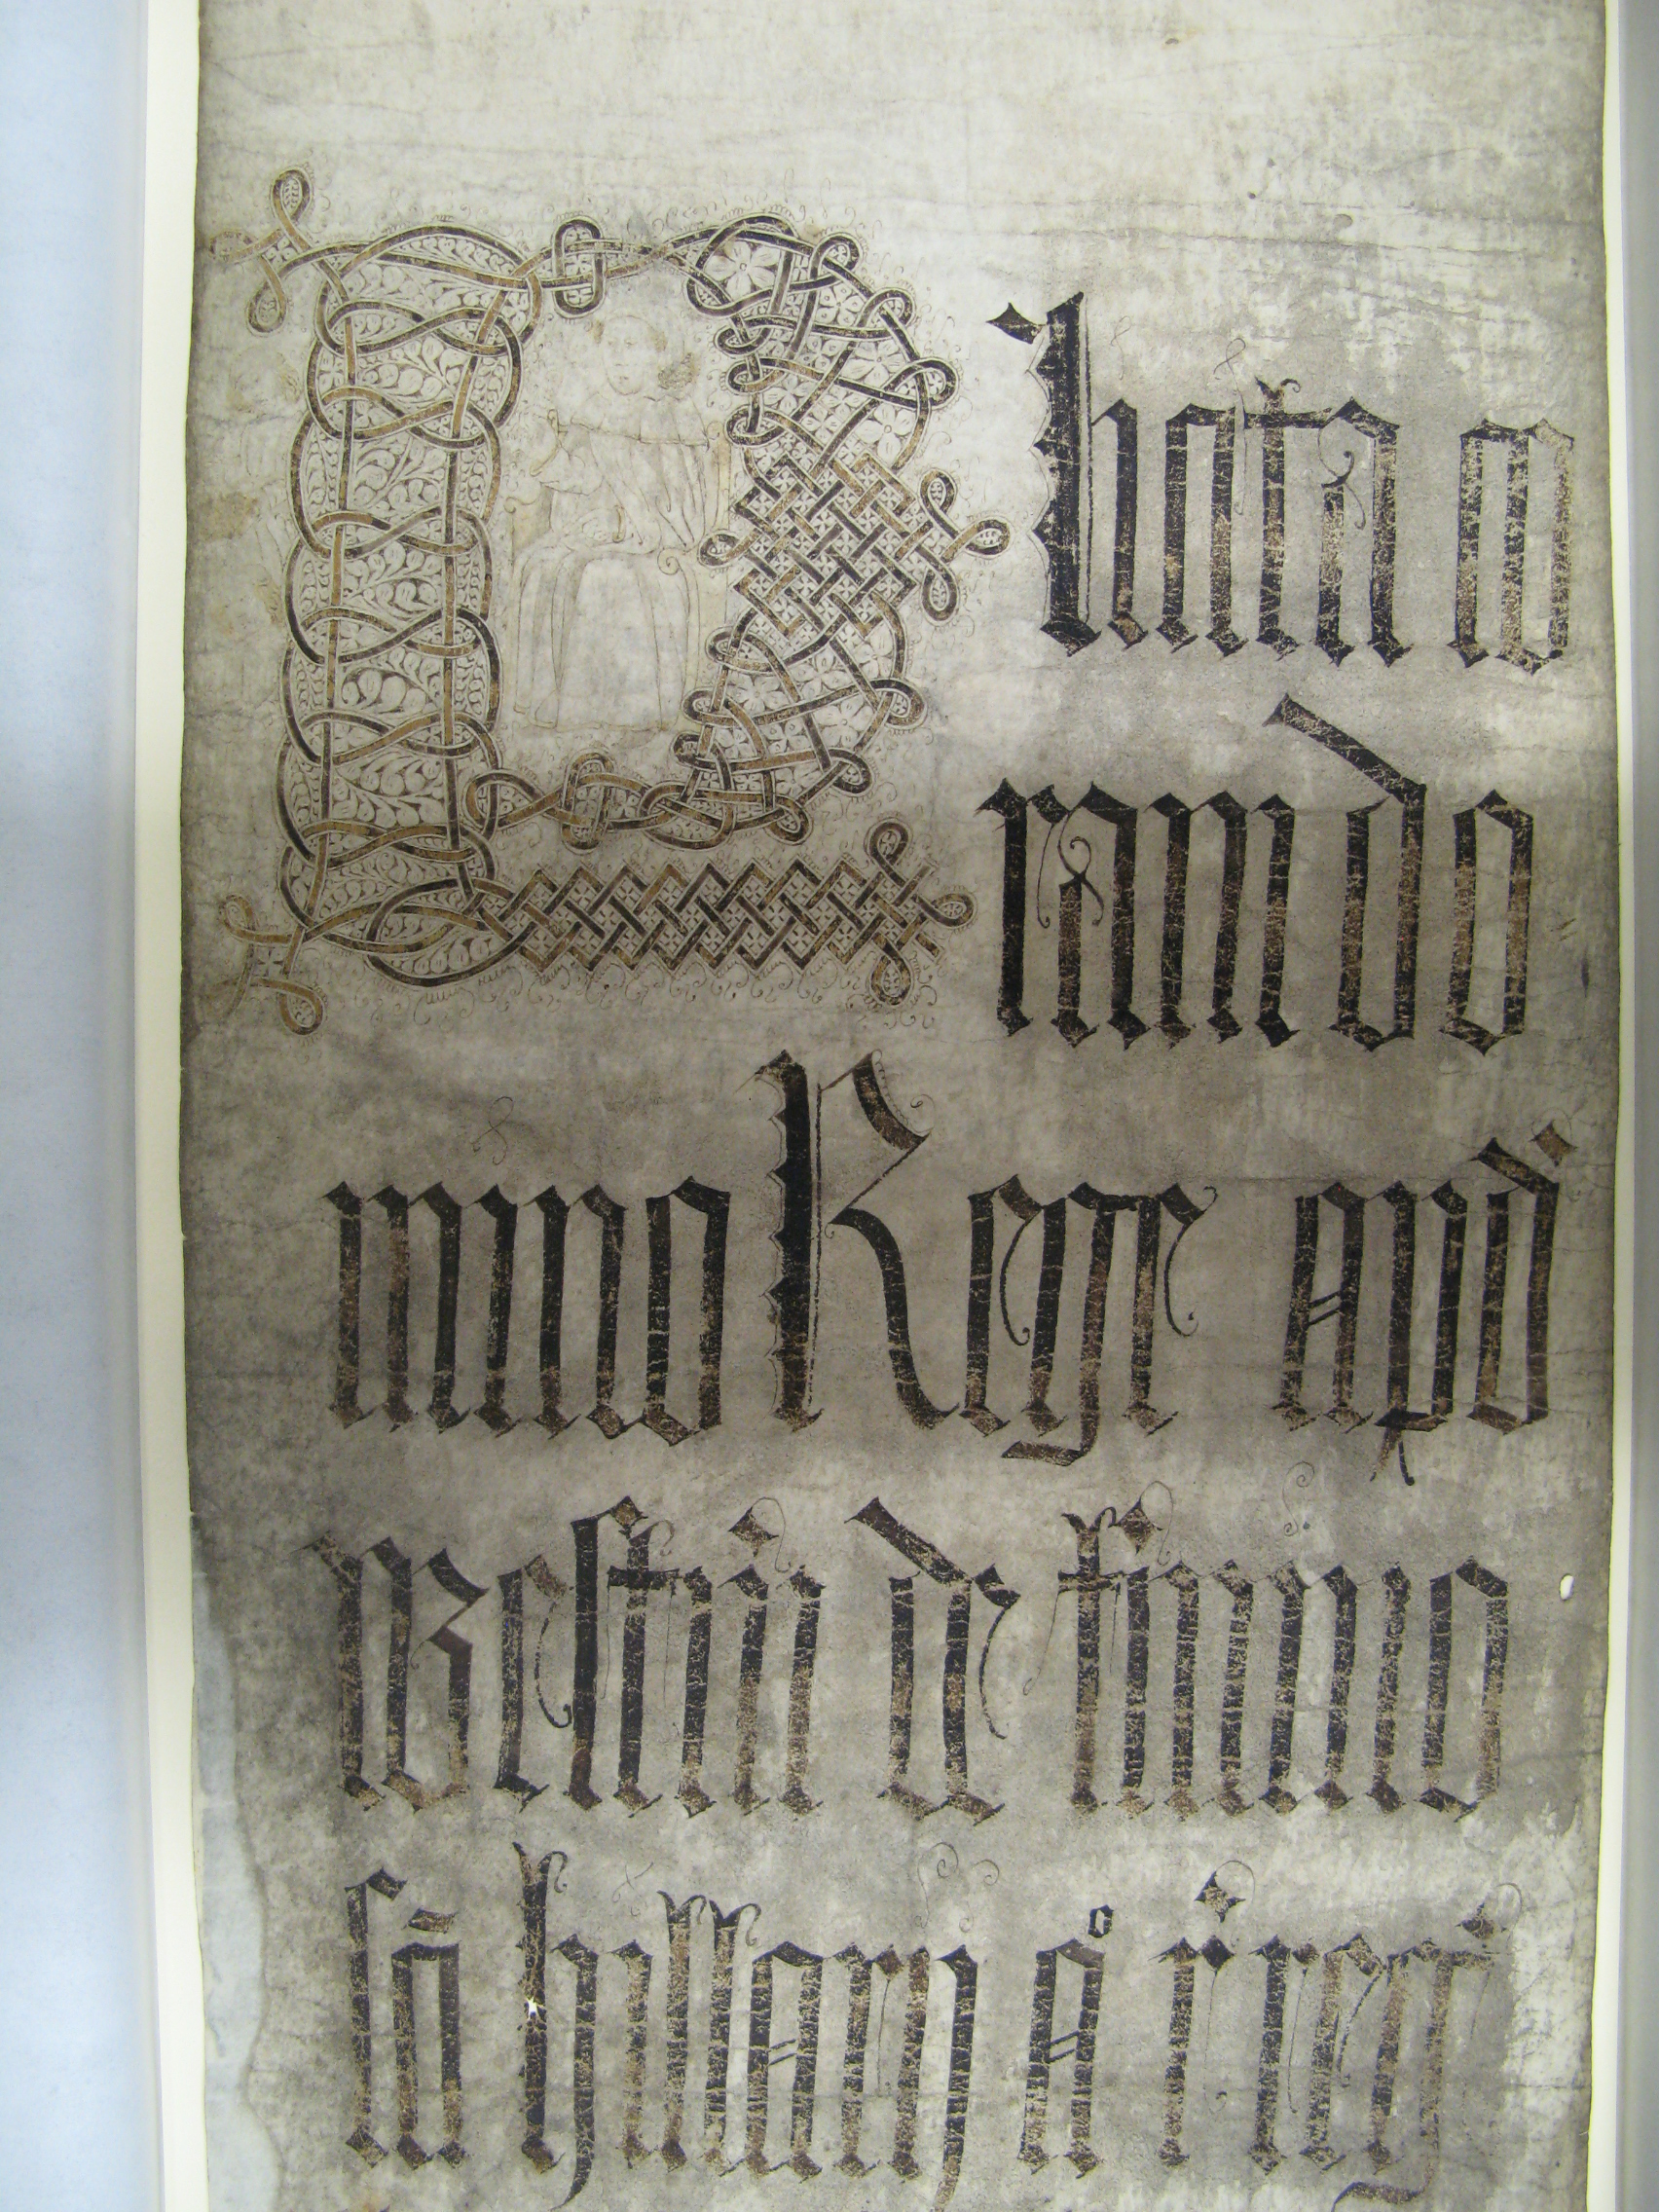 Placita co
ram do
mino Rege apd'
Westm' de t'mino
sc̄i hillarij a° r' reg'